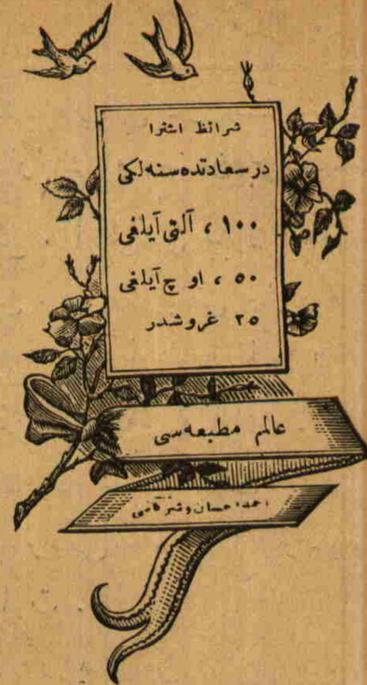 شرائط اشترا
درسعادتده سنه لكی
١٠٠ ، آلتی آیلغی
٥٠ ، اوچ آیلغی
٢٥ غروشدر
عالم مطبعه سی
احمد احسان وشركاسی